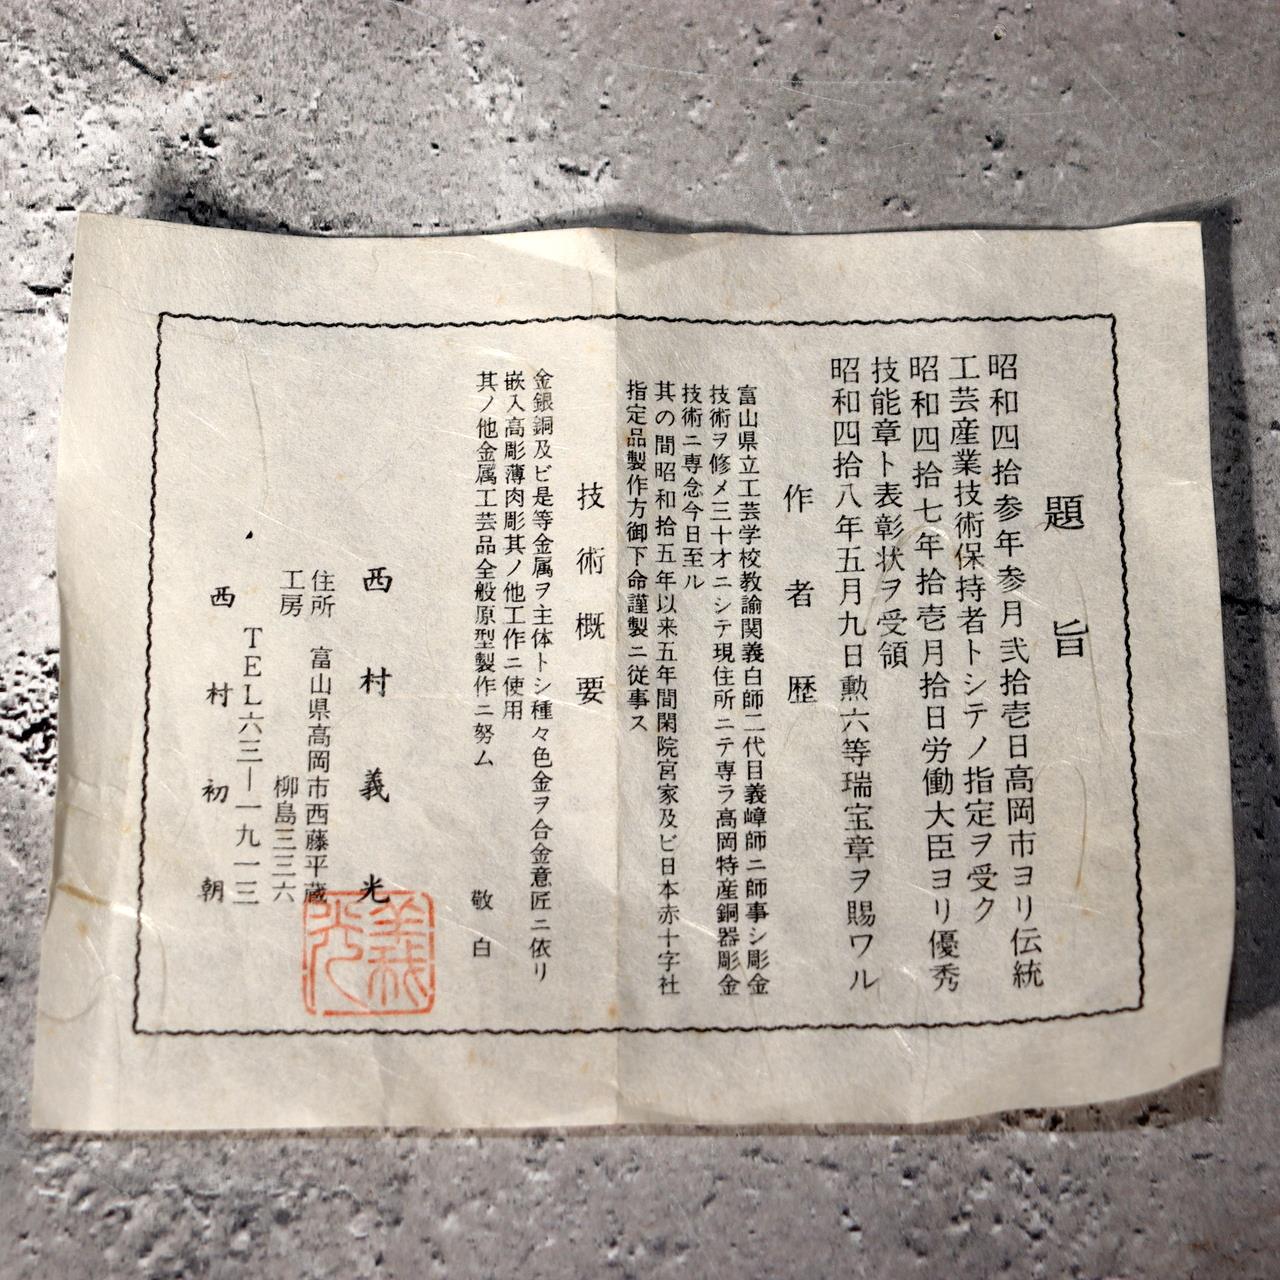 題旨
昭和四拾参年参月弐拾壱日高岡市ヨリ伝統
工芸産業技術保持者トシテノ指定ヲ受ク
昭和四拾七年拾壱月拾日労働大臣ヨリ優秀
技能章ト表彰状ヲ受領
昭和四拾八年五月九日勲六等瑞宝章ヲ賜ワル
作者歴
富山県立工芸学校教諭関義白師二代目義嶂師ニ師事シ彫金
技術ヲ修メ三十才ニシテ現住所ニテ専ラ高岡特産銅器彫金
技術ニ専念今日至ル
其の間昭和拾五年以来五年間閑院宮家及ビ日本赤十字社
指定品製作方御下命謹製ニ従事ス
技術概要
金銀銅及ビ是等金属ヲ主体トシ種々色金ヲ合金意匠ニ依リ
嵌入高彫薄肉彫其ノ他工作ニ使用
其ノ他金属工芸品全般原型製作ニ努ム
敬白
西村義光
義光
住所 富山県高岡市西藤平蔵
工房 柳島三三六
TEL六三―一九一三
西村初朝